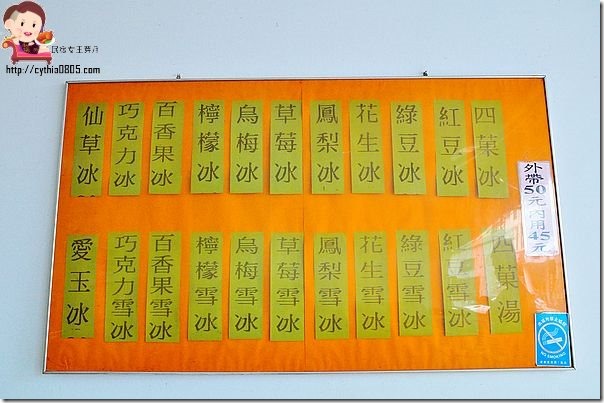 民宿女王芽月
http://cythia0805.com
四菓冰
紅豆冰
綠豆冰
花生冰
鳳梨冰
草莓冰
烏梅冰
檸檬冰
百香果冰
巧克力冰
仙草冰
四菓湯
紅豆雪冰
綠豆雪冰
花生雪冰
鳳梨雪冰
草莓雪冰
烏梅雪冰
檸檬雪冰
百香果雪冰
巧克力雪冰
愛玉冰
外帶50元內用45元
NO SMOKING